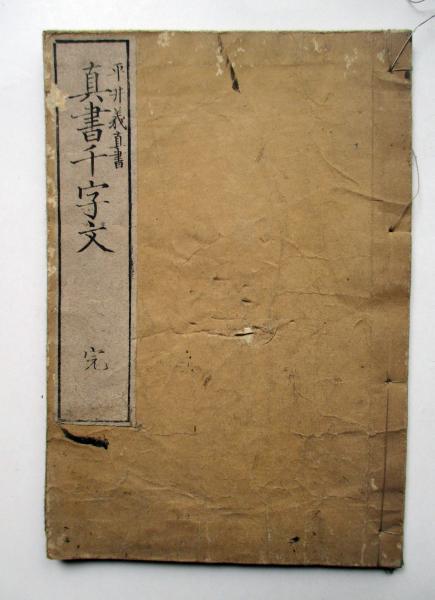 平井義真書
真書千字文
完